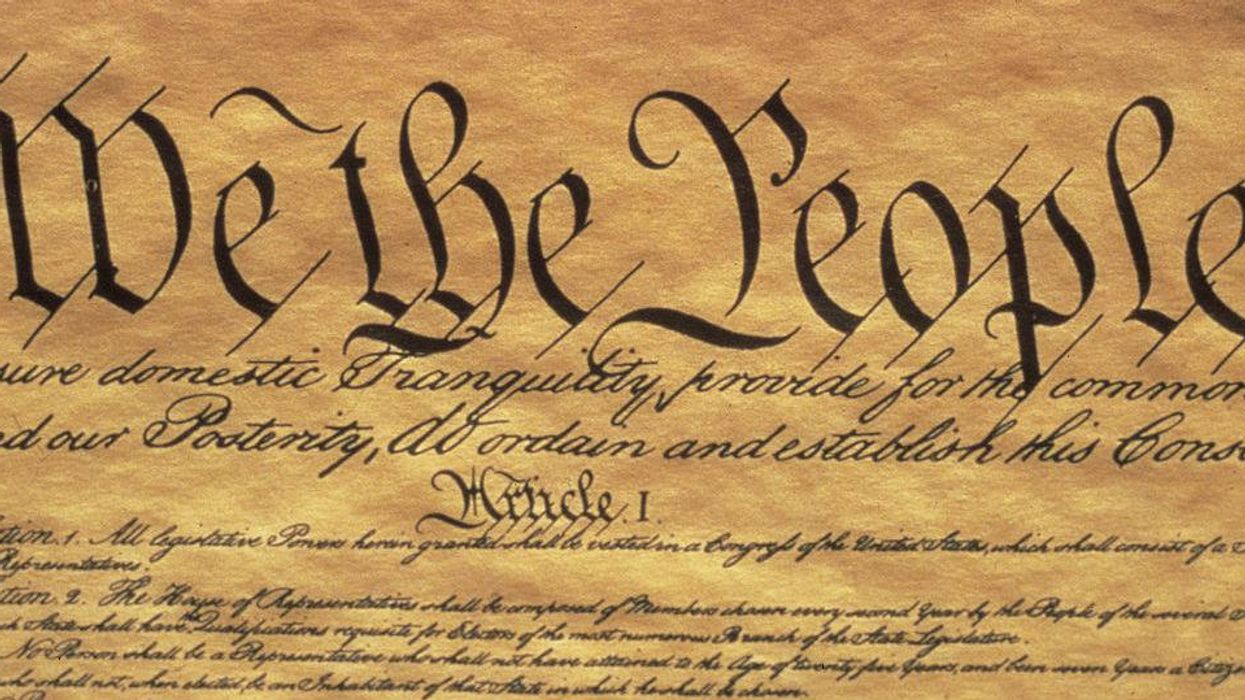 We the People
sure domestic Tranquility, provide for the common
ed our Posterity, do ordain and establish this Cons
Article. I.
ction. 1. All legislative Powers herein granted shall be vested in a Congress of the United States, which shall consist of a S
Representatives.
ction. 2. The House of Representatives shall be composed of Members chosen every second Year by the People of the several S
ch State shall have the Qualifications requisite for Electors of the most numerous Branch of the State Legislature.
No Person shall be a Representative who shall not have attained to the Age of twenty five Years, and been seven Years a Citize
who shall not, when elected, be an Inhabitant of that State in which he shall be chosen.